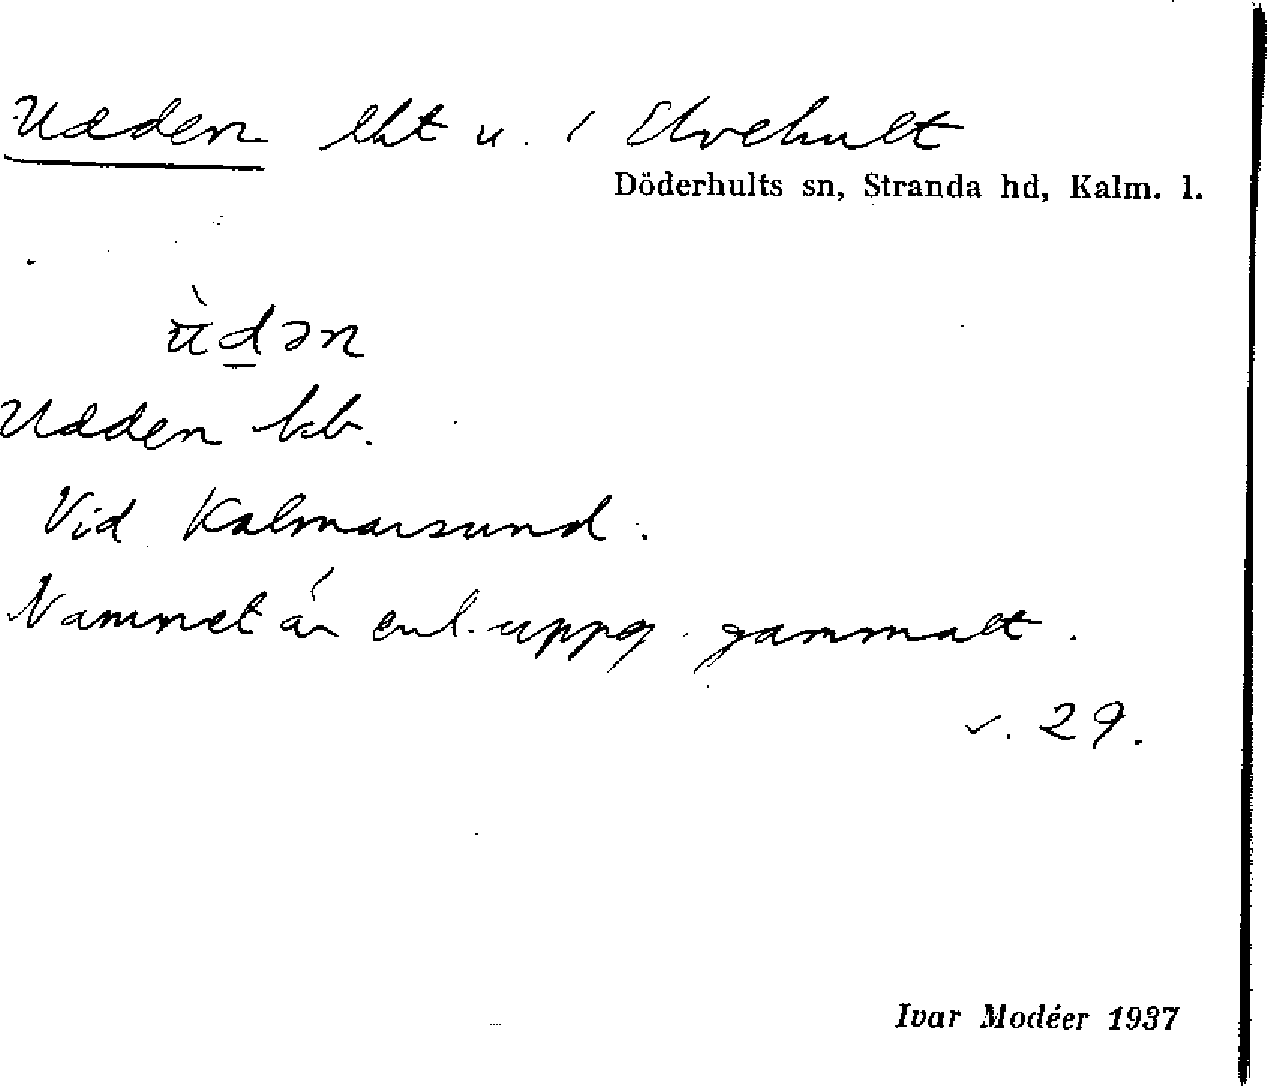 Udden lht u. / Elvehult
Döderhults sn, Stranda hd, Kalm. l.
ùdən
Udden kb.
Vid Kalmarsund.
Namnet är enl. uppg. gammalt.
v. 29.
Ivar Modéer 1937